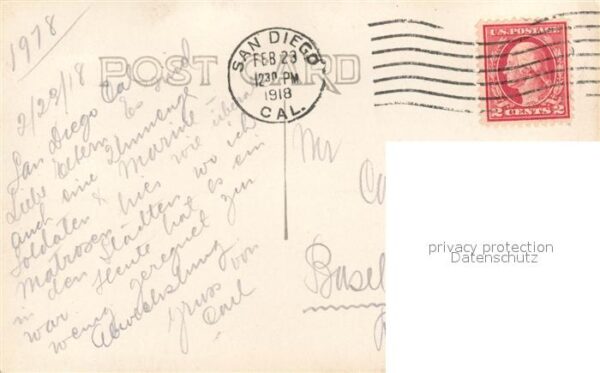 1918
POST CARD
SAN DIEGO
FEB 23
1230 PM
1918
CAL.
U.S. POSTAGE
2 CENTS 2
2/23/18
San Diego Cal
Liebe Eltern. Es sind
auch eine Unmenge
Soldaten & Marine
Matrosen hier wie überall
in den Städten wo ich
war. Heute hat es ein
wenig geregnet zur
Abwechslung
Gruss von
Carl
Mr
Ca
Basel
privacy protection
Datenschutz